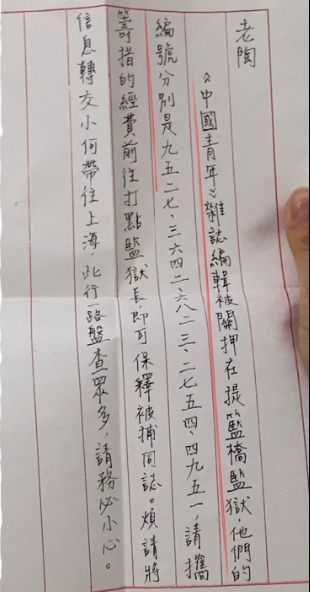 老陶
《中國青年》雜誌編輯被關押在提籃橋監獄，他們的
編號分別是九五二七、三六四二、六八二三、二七五四、四九五一，請攜
籌措的經費前往打點監獄長即可保釋被捕同誌。煩請將
信息轉交小何帶往上海，此行一路盤查眾多，請務必小心。